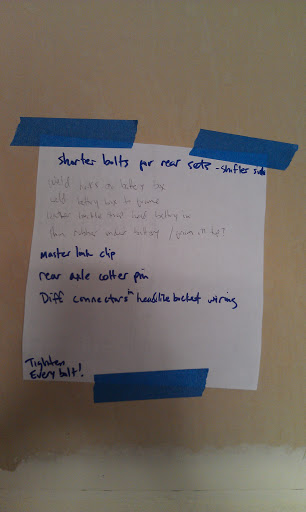 shorter bolts for rear sets - shifter side
weld tabs to battery box
weld battery box to frame
under battery / foam in top?
Master link clip
rear axle cotter pin
Diff connectors in headlite bucket wiring
Tighten
Every bolt!